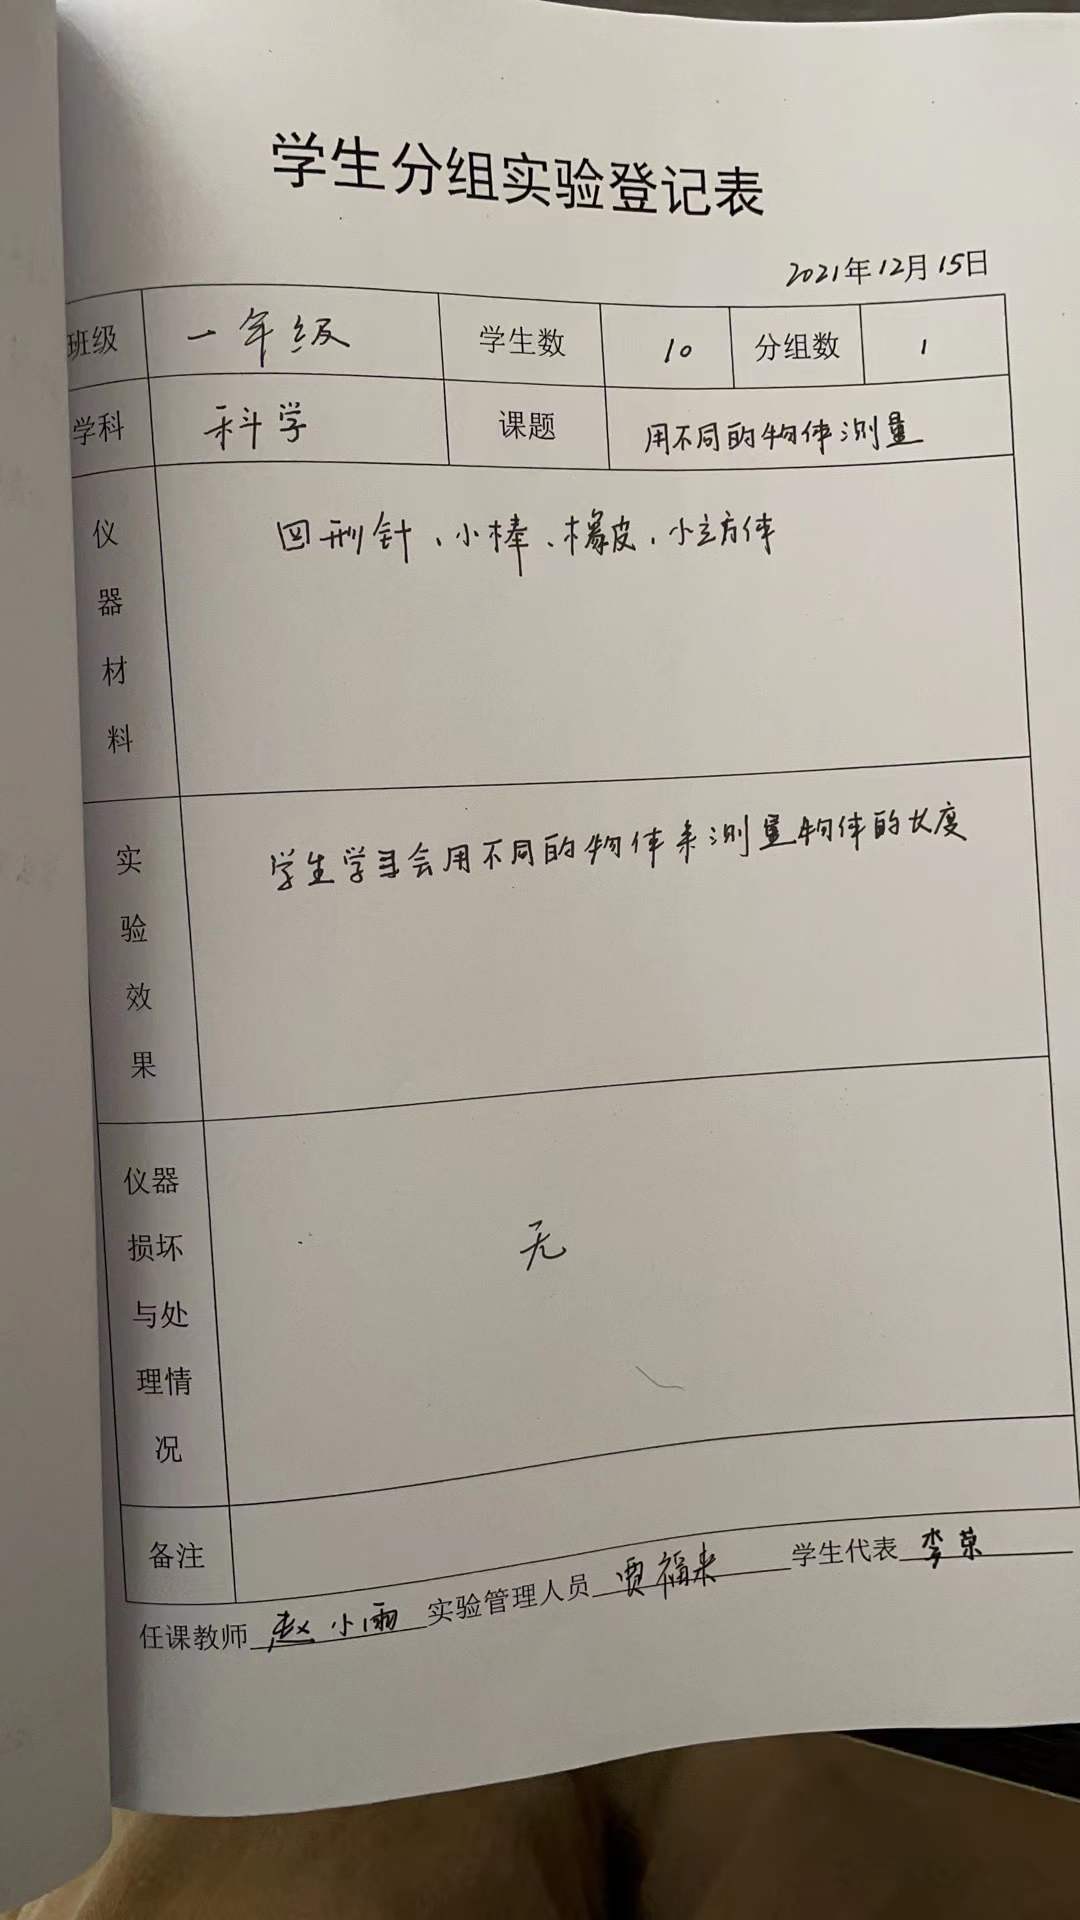 学生分组实验登记表
2021年12月15日
班级 一年级 学生数 10 分组数 1
学科 科学 课题 用不同的物体测量
仪器材料 回形针、小棒、橡皮、小立方体
实验效果 学生学习会用不同的物体来测量物体的长度
仪器损坏与处理情况 无
备注
任课教师 赵小雨 实验管理人员 贾福来 学生代表 李荣